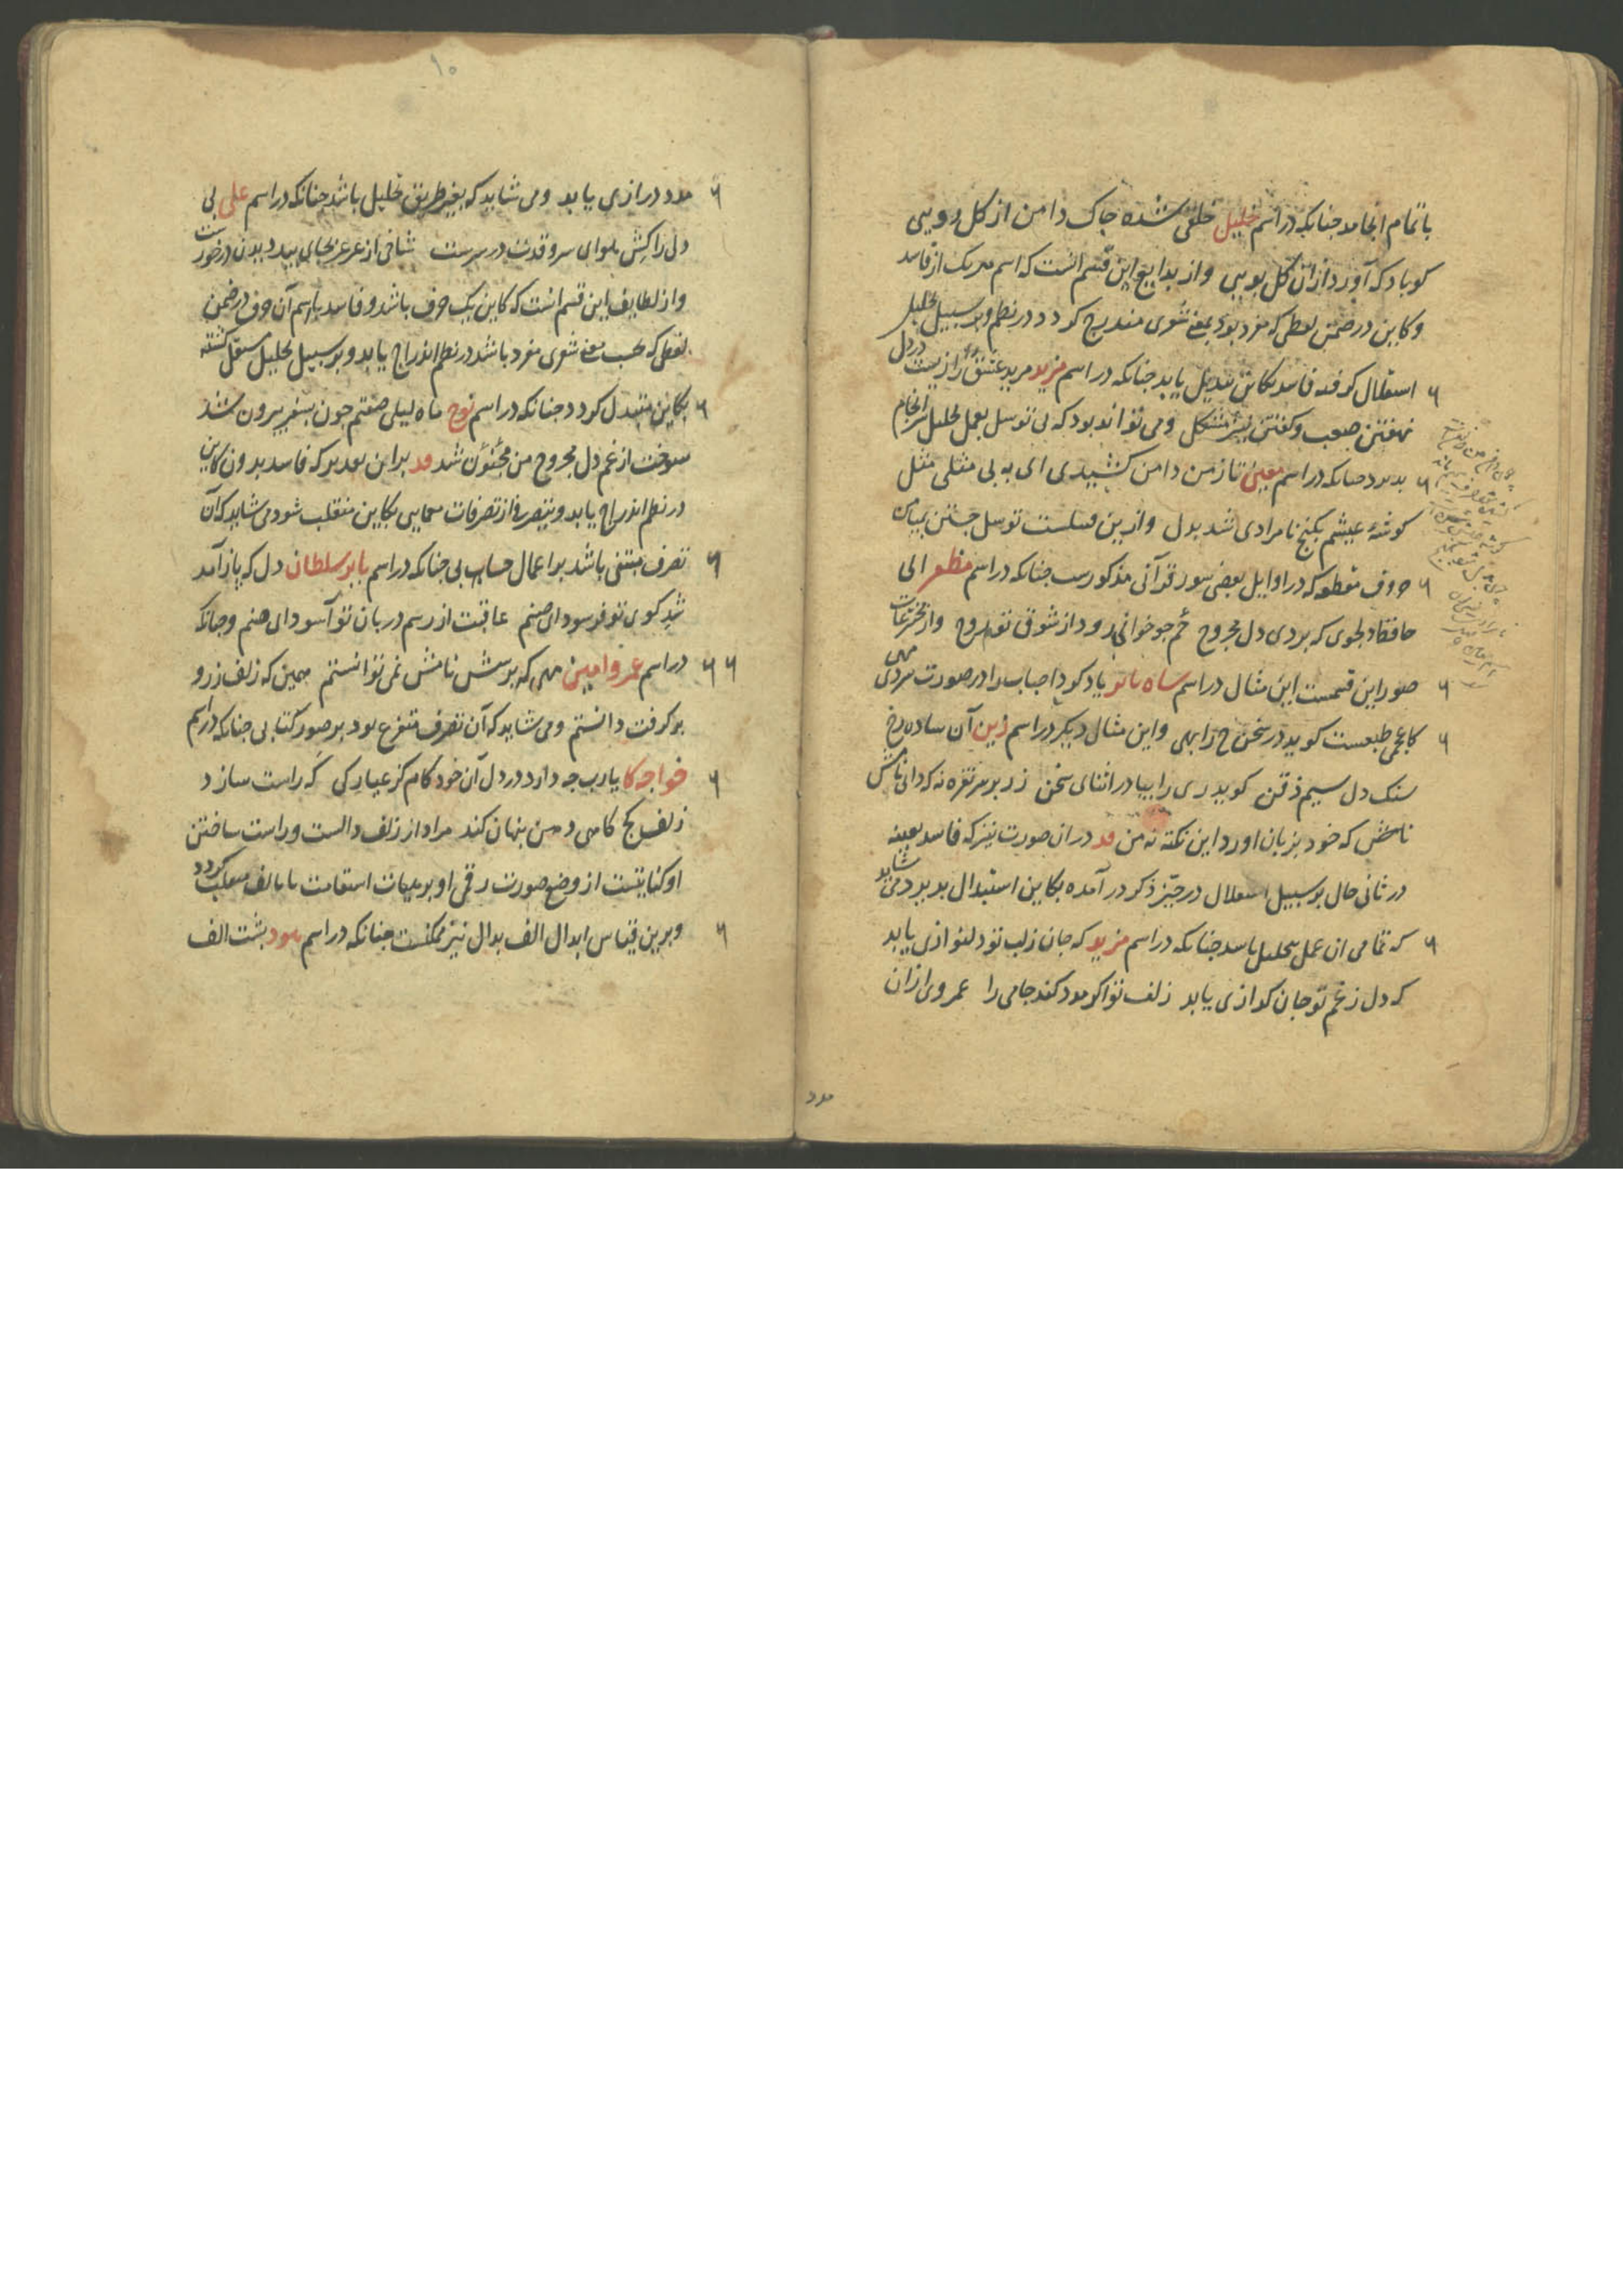 باتمام انجامد چنانکه در اسم خلیل خلقی شده چاک دامن از کل رویی
کو باد که آورد ازان کل بویی وز بدایع این قسم انست که اسم هر یک از فاسد
و کاین در ضمن لفظی که مفرد بود بمعنی شعری مندرج کردد در نظم و بر سبیل تحلیل
استقلال کرفته فاسد بکاین تبدیل یابد چنانکه در اسم مزید مرید عشق را زیست در دل
نهفتن صعب و کفتن نیز مشکل و می تواند بود که بی توسل بعمل تحلیل سرانجام
پذیرد چنانکه در اسم معین تا ز من دامن کشیدی ای به بی مثلی مثل
کوشهٔ عیشم بکنج نامرادی شد بدل و ازین قبیلست توسل جستن ببیان
حروف مقطعه که در اوایل بعضی سور قرآنی مذکورست چنانکه در اسم مظفر الی
حافظا دلجوی که بردی دل مجروح حم چو خوانی رود از شوق تو روح و از مخترعات
صور این قسمست این مثال در اسم شاه بابو یاد کرد احباب را در صورت مردی مهی
کاعجمی طبعست کوید در سخن ح را بهی و این مثال دیکر در اسم زین آن ساده رخ
سنک دل سیم ذقن کوید ری را بیا در اثنای سخن زر بر سر نقره نه که دانی نامش
نامش که خود بزبان اورد این نکته نه من و در ان صورت نیز که فاسد بعینه
در ثانی حال بر سبیل استقلال در حیز ذکر در آمده بکاین استبدال پذیرد می شاید
که تمامی ان عمل بتحلیل باشد چنانکه در اسم مزید که جان ز لب تو دلنوازی یابد
که دل ز غم تو جان کدازی یابد زلف تو اکر مدد کند جامی را عمر وی ازان
مدد
۱۰
مدد درازی یابد و می شاید که بغیر طریق تحلیل باشد چنانکه در اسم علی بی
دلی را کش هوای سرو قدت در سرست شاخی از عرعر بجای بید دیدن در خورست
و از لطایف این قسم انست که کاین یک حرف باشد و فاسد باسم آن حرف در ضمن
لفظی که بحسب معنی شعری مفرد باشد در نظم اندراج یابد و بر سبیل تحلیل مستقل کشته
بکاین متبدل کردد چنانکه در اسم نوح ماه لیلی صفتم چون بسفر بیرون شد
سوخت از غم دل مجروح من مجنون شد و بر این تقدیر که فاسد بدون کاین
در نظم اندراج یابد و بتصرفی از تصرفات معمایی بکاین منقلب شود می شاید که آن
تصرف مبتنی باشد بر اعمال حسابی چنانکه در اسم بابر سلطان دل که باز آمد
شد کوی تو فرسود ای صنم عاقبت از رسم دربان تو آسود ای صنم و چنانکه
در اسم عمر و امین مهی که پرسش نامش نمی توانستم همین که زلف ز رو
بر کرفت دانستم و می شاید که آن تصرف متفرع بود بر صور کتابی چنانکه در اسم
خواجه کا یارب چه دارد در دل آن خود کام کژ عیار کی که راست سازد
زلف کج کاهی دهن پنهان کند مراد از زلف دالست و راست ساختن
او کنایتست از وضع صورت رقمی او بر هیات استقامت تا بالف منقلب کردد
و برین قیاس ابدال الف بدال نیز ممکنست چنانکه در اسم بشت الف